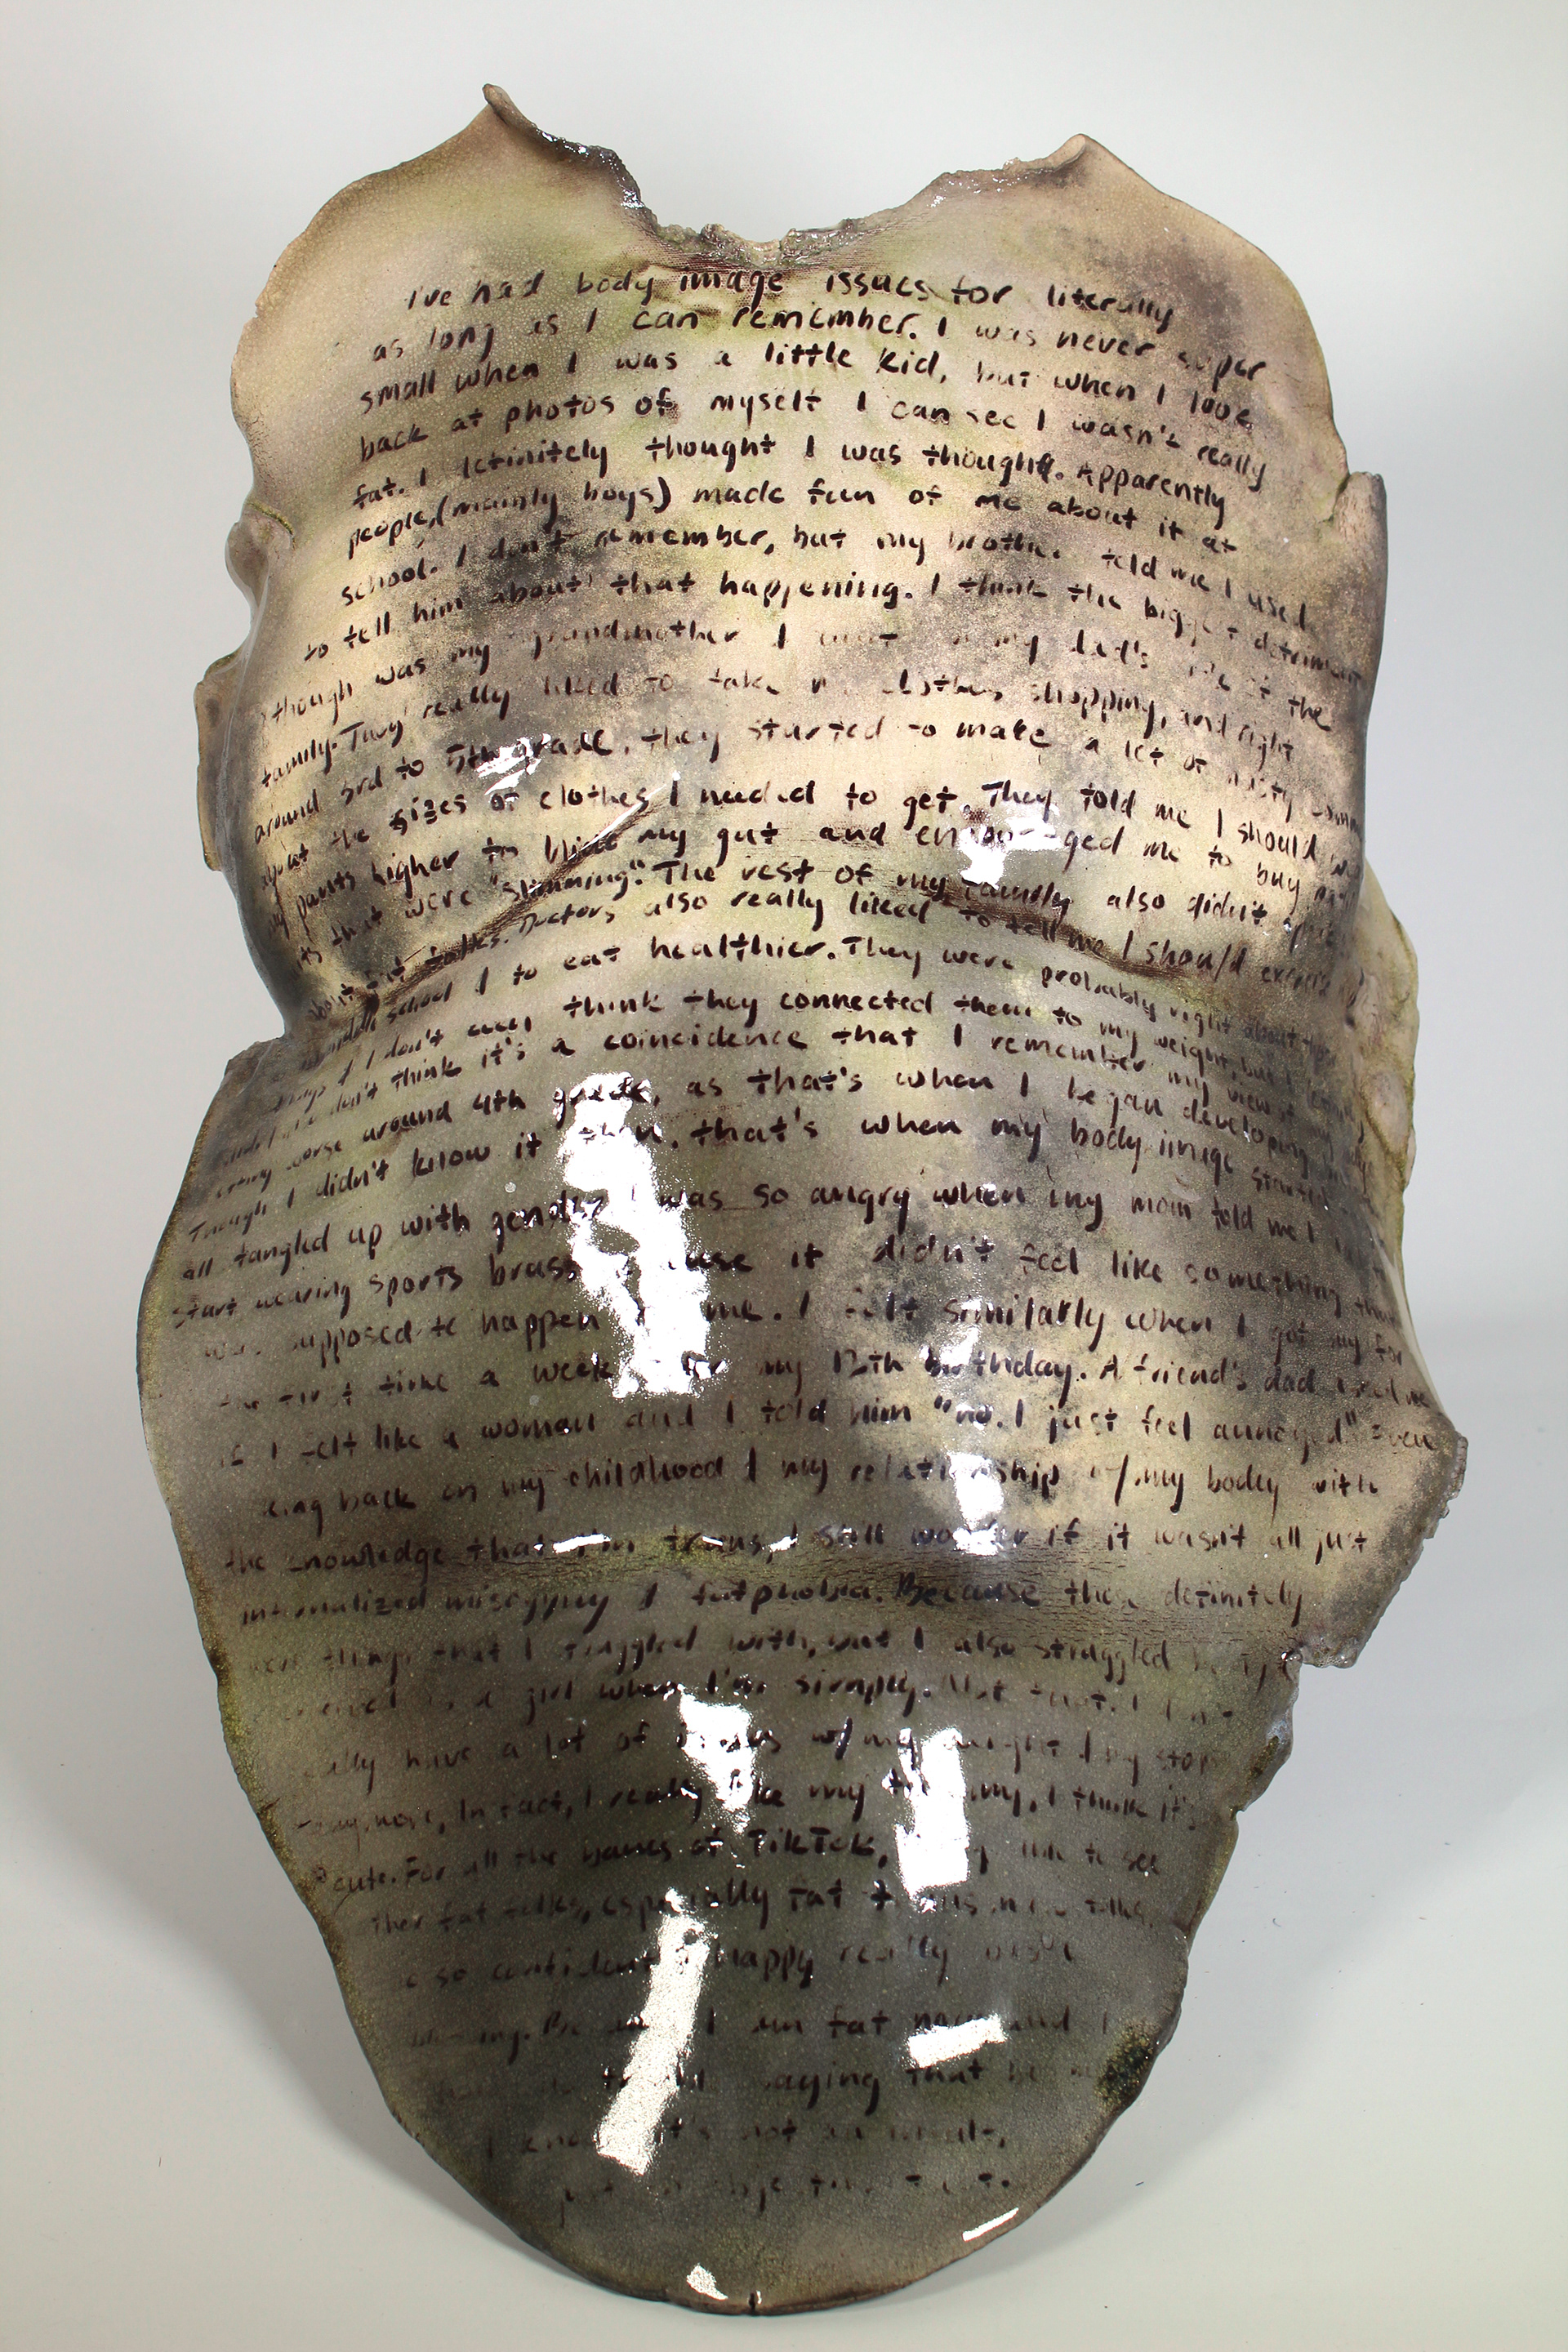 I've had body image issues for literally
as long as I can remember. I was never super
small when I was a little kid, but when I look
back at photos of myself I can see I wasn't really
fat. I definitely thought I was though. Apparently
people, (mainly boys) made fun of me about it at
school. I don't remember, but my brother told me I used
to tell him about that happening. I think the biggest detriment
though was my grandmother I aunt on my dad's side of the
family. They really liked to take me clothes shopping, and right
around 3rd to 5th grade, they started to make a lot of nasty
about the sizes of clothes I needed to get. They told me I should
my pants higher to hide my gut and encouraged me to buy
that were "slimming". The rest of my family also didn't
about fat folks. Doctors also really liked to tell me I should exercise
middle school I to eat healthier. They were probably right about
things I I don't even think they connected them to my weight, but I
don't think it's a coincidence that I remember my view of my
getting worse around 4th grade, as that's when I began developing
Though I didn't know it then, that's when my body image started
all tangled up with gender. I was so angry when my mom told me I
start wearing sports brass because it didn't feel like something that
was supposed to happen to me. I felt similarly when I got my
the first time a week my 12th birthday. A friend's dad asked me
if I felt like a woman and I told him "no. I just feel annoyed" Even
back on my childhood I my relationship w/ my body with
the knowledge that I'm trans, I still wonder if it wasn't all just
internalized misogyny I fatphobia. Because those definitely
were things that I struggled with, but I also struggled
as a girl when I'm simply. Not that. I don't
really have a lot of issues w/ my weight I
anymore, In fact, I really like my tummy, I think it's
cute. For all the banes of TikTok, to see
other fat folks, especially fat trans folks.
so confident I happy really
I am fat now and I
saying that
I know it's not an insult,
just